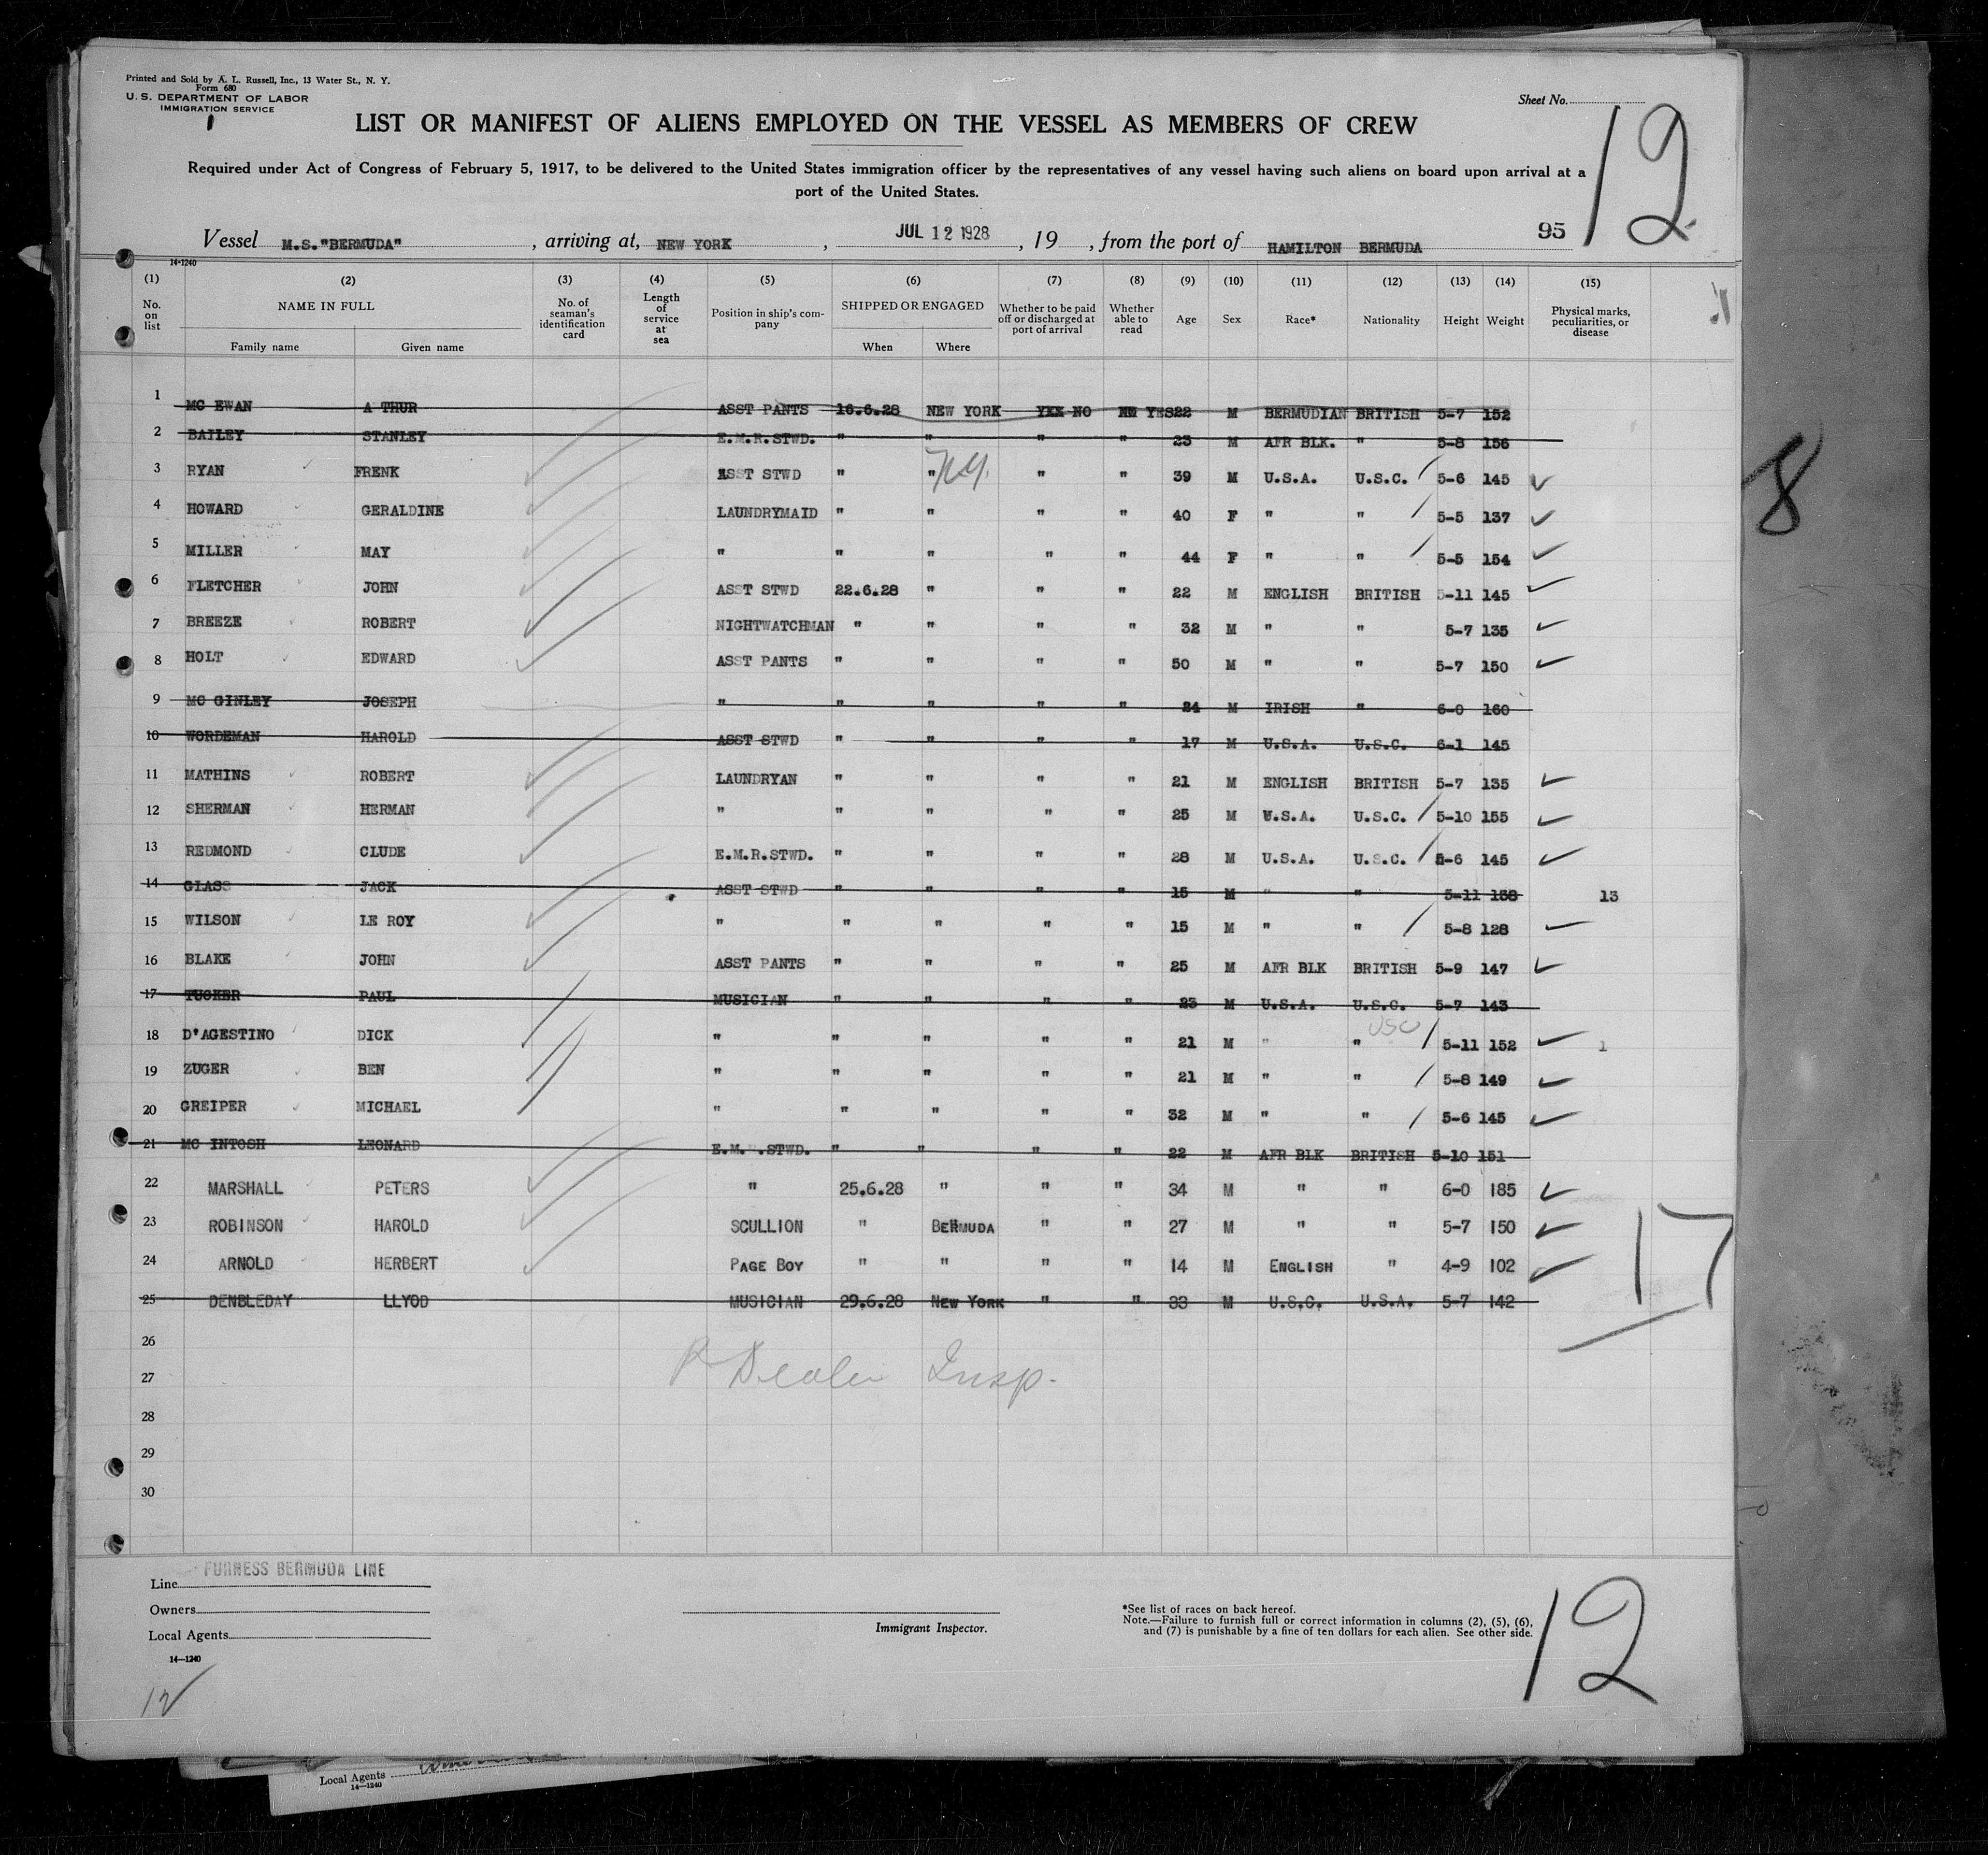 Printed and Sold by A. L. Russell, Inc., 13 Water St., N. Y.
Form 680
U. S. DEPARTMENT OF LABOR
IMMIGRATION SERVICE
Sheet No.
12
LIST OR MANIFEST OF ALIENS EMPLOYED ON THE VESSEL AS MEMBERS OF CREW
Required under Act of Congress of February 5, 1917, to be delivered to the United States immigration officer by the representatives of any vessel having such aliens on board upon arrival at a
port of the United States.
Vessel M.S."BERMUDA", arriving at, NEW YORK, JUL 12 1928, 19 , from the port of HAMILTON BERMUDA 95
14-1240
(1) (2) (3) (4) (5) (6) (7) (8) (9) (10) (11) (12) (13) (14) (15)
No. on list NAME IN FULL No. of seaman's identification card Length of service at sea Position in ship's company SHIPPED OR ENGAGED Whether to be paid off or discharged at port of arrival Whether able to read Age Sex Race* Nationality Height Weight Physical marks, peculiarities, or disease
Family name Given name When Where
1 MC EWAN A THUR ASST PANTS 16.6.28 NEW YORK NO YES 22 M BERMUDIAN BRITISH 5-7 152
2 BAILEY STANLEY E.M.R.STWD. " " " " 23 M AFR BLK. " 5-8 156
3 RYAN FRENK ASST STWD " " N.Y. " " 39 M U.S.A. U.S.C. 5-6 145
4 HOWARD GERALDINE LAUNDRYMAID " " " " 40 F " " 5-5 137
5 MILLER MAY " " " " " 44 F " " 5-5 154
6 FLETCHER JOHN ASST STWD 22.6.28 " " " 22 M ENGLISH BRITISH 5-11 145
7 BREEZE ROBERT NIGHTWATCHMAN " " " " 32 M " " 5-7 135
8 HOLT EDWARD ASST PANTS " " " " 50 M " " 5-7 150
9 MC GINLEY JOSEPH " " " " " 24 M IRISH " 6-0 160
10 WORDEMAN HAROLD ASST STWD " " " " 17 M U.S.A. U.S.C. 6-1 145
11 MATHINS ROBERT LAUNDRYAN " " " " 21 M ENGLISH BRITISH 5-7 135
12 SHERMAN HERMAN " " " " " 25 M U.S.A. U.S.C. 5-10 155
13 REDMOND CLUDE E.M.R.STWD. " " " " 28 M U.S.A. U.S.C. 5-6 145
14 GLASS JACK ASST STWD " " " " 15 M " " 5-11 138 13
15 WILSON LE ROY " " " " " 15 M " " 5-8 128
16 BLAKE JOHN ASST PANTS " " " " 25 M AFR BLK BRITISH 5-9 147
17 TUCKER PAUL MUSICIAN " " " " 23 M U.S.A. U.S.C. 5-7 143
USC
18 D'AGESTINO DICK " " " " " 21 M " " 5-11 152 1
19 ZUGER BEN " " " " " 21 M " " 5-8 149
20 GREIPER MICHAEL " " " " " 32 M " " 5-6 145
21 MC INTOSH LEONARD E.M. .STWD. " " " " 22 M AFR BLK BRITISH 5-10 151
22 MARSHALL PETERS " 25.6.28 " " " 34 M " " 6-0 185
23 ROBINSON HAROLD SCULLION " BERMUDA " " 27 M " " 5-7 150
24 ARNOLD HERBERT PAGE BOY " " " " 14 M ENGLISH " 4-9 102
17
25 DENBLEDAY LLYOD MUSICIAN 29.6.28 NEW YORK " " 33 M U.S.C. U.S.A. 5-7 142
26
27 Insp.
28
29
30
FURNESS BERMUDA LINE
Line
Owners
Local Agents
14-1240
Immigrant Inspector.
*See list of races on back hereof.
Note.—Failure to furnish full or correct information in columns (2), (5), (6),
and (7) is punishable by a fine of ten dollars for each alien. See other side.
12
12
8
Local Agents
14-1240